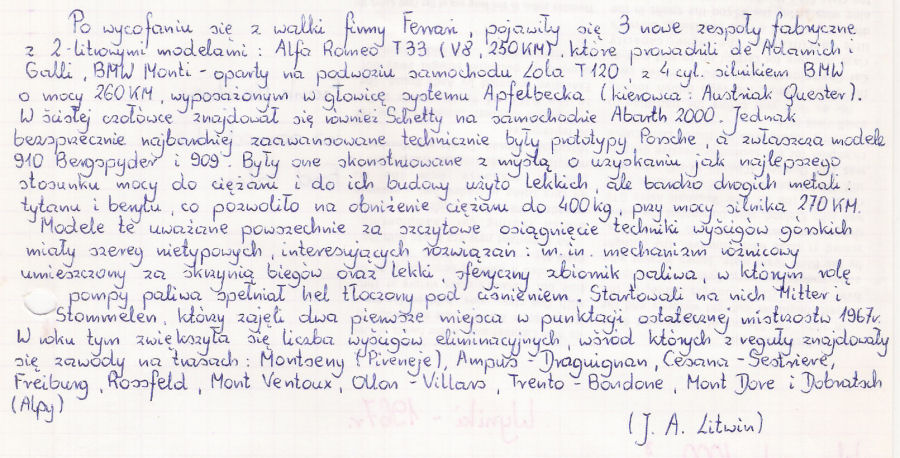 Po wycofaniu się z walki firmy Ferrari, pojawiły się 3 nowe zespoły fabryczne
z 2-litrowymi modelami: Alfa Romeo T33 (V8, 250KM), które prowadzili de Adamich i
Galli, BMW Monti - oparty na podwoziu samochodu Lola T120, z 4 cyl. silnikiem BMW
o mocy 260KM, wyposażonym w głowicę systemu Apfelbecka (kierowca: Austriak Quester).
W ścisłej czołówce znajdował się również Schetty na samochodzie Abarth 2000. Jednak
bezsprzecznie najbardziej zaawansowane technicznie były prototypy Porsche, a zwłaszcza modele
910 Bergspyder i 909. Były one skonstruowane z myślą o uzyskaniu jak najlepszego
stosunku mocy do ciężaru i do ich budowy użyto lekkich, ale bardzo drogich metali:
tytanu i berylu, co pozwoliło na obniżenie ciężaru do 400kg, przy mocy silnika 270KM.
Modele te uważane powszechnie za szczytowe osiągnięcie techniki wyścigów górskich
miały szereg nietypowych, interesujących rozwiązań: m.in. mechanizm różnicowy
umieszczony za skrzynią biegów oraz lekki, sferyczny zbiornik paliwa, w którym rolę
pompy paliwa spełniał hel tłoczony pod ciśnieniem. Startowali na nich Mitter i
Stommelen, którzy zajęli dwa pierwsze miejsca w punktacji ostatecznej mistrzostw 1967r.
W roku tym zwiększyła się liczba wyścigów eliminacyjnych, wśród których z reguły znajdowały
się zawody na trasach: Montseny (Pireneje), Ampus - Draguignan, Cesana - Sestriere,
Freiburg, Rossfeld, Mont Ventoux, Ollon - Villars, Trento - Bondone, Mont Dore i Dobratsch
(Alpy)
(J. A. Litwin)